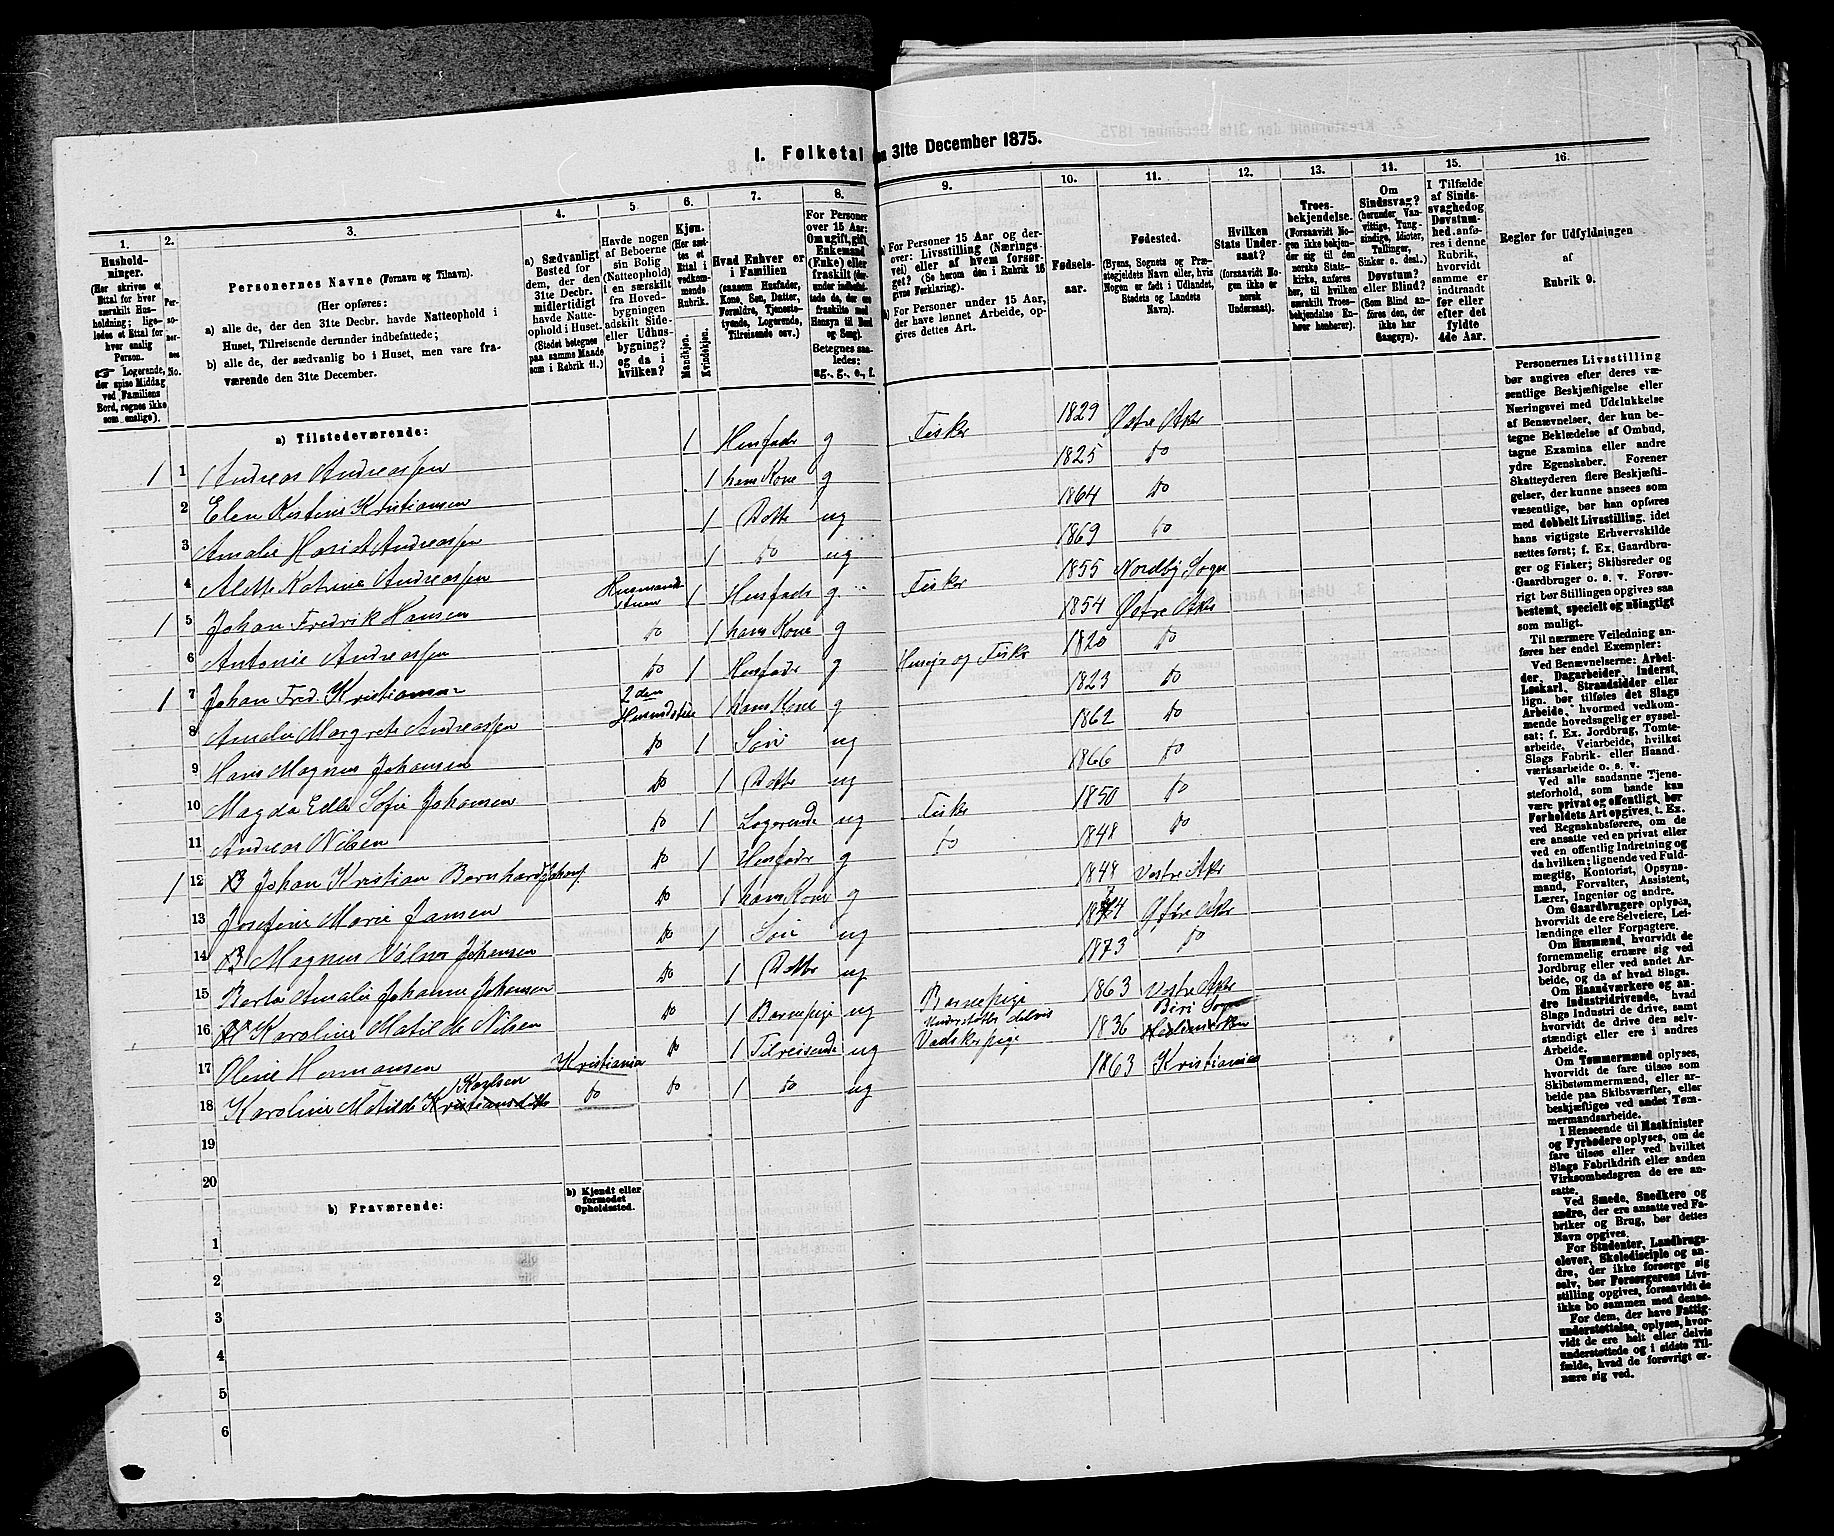 I. Folketal den 31te December 1875.
1. 2. 3. 4. 5. 6. 7. 8. 9. 10. 11. 12. 13. 14. 15. 16.
Husholdninger. (Her skrives et Ettal for hver særskilt Husholdning; ligeledes et Ettal for hver enslig Person. ☞ Logerende, der spise Middag ved Familiens Bord, regnes ikke som enslige).
Personernes No.
Personernes Navne (Fornavn og Tilnavn).
(Her opføres:
a) alle de, der den 31te Decbr. havde Natteophold i Huset, Tilreisende derunder indbefattede;
b) alle de, der sædvanlig bo i Huset, men vare fraværende den 31te December.
a) Sædvanligt Bosted for dem, der den 31te Decbr. midlertidigt havde Natteophold i Huset. (Stedet betegnes paa samme Maade som i Rubrik 11.)
Havde nogen af Beboerne sin Bolig (Natteophold) i en særskilt fra Hovedbygningen adskilt Side- eller Udhusbygning? og da i hvilken?
Kjøn. (Her sættes et Ettal i vedkommende Rubrik.
Mandkjøn. Kvindekjøn.
Hvad Enhver er i Familien (saasom Husfader, Kone, Søn, Datter, Forældre, Tjenestetyende, Logerende, Tilreisende osv.)
For Personer over 15 Aar: Om ugift, gift, Enkemand (Enke) eller fraskilt
Betegnes saaledes: ug., g., e., f.
For Personer 15 Aar og derover: Livsstilling (Næringsvei) eller af hvem forsørget? (Se herom den i Rubrik 16 givne Forklaring).
For Personer under 15 Aar, der have lønnet Arbeide, opgives dettes Art.
Fødselsaar.
Fødested. (Byens, Sognets og Præstegjeldets Navn eller, hvis Nogen er født i Udlandet, Stedets og Landets Navn).
Hvilken Stats Undersaat? (forsaavidt Nogen ikke er norsk Undersaat).
Troesbekjendelse. (Forsaavidt Nogen ikke bekjender sig til den norske Statskirke, anføres her, til hvilken særskilt Troesbekjendelse Enhver henhører).
Om Sindssvag? (herunder Vanvittige, Tungsindige, Idioter, Tullinger, Sinker o. desl.) Døvstum? eller Blind? (Som Blind anføres den, der ikke har Gangsyn).
I Tilfælde af Sindssvaghed og Døvstumhed, anføres i denne Rubrik, hvorvidt samme er indtraadt før eller efter det fyldte 4de Aar.
Regler for Udfyldningen af Rubrik 9.
a) Tilstedeværende:
1 1 Andreas Andreassen 1 Husfader g Fisker 1829 Østre Aker
2 Elen Kistine Kristiansen 1 hans Kone g 1825 do
3 Amalie Andreassen 1 Datter ug 1864 do
4 Alette Katrine Andreassen 1 do ug 1869 do
1 5 Johan Fredrik Hansen 1 Husfader g Fisker 1855 Nordby Sogn
6 Antonie Andreassen do 1 hans Kone g 1854 Østre Aker
1 7 Johan Fred. Kristiansen do 1 Husfader g Huseier og Fisker 1820 do
8 Amalie Margrete Andreassen 2den 1 hans Kone g 1823 do
9 Hans Magnus Johansen do 1 Søn ug 1862 do
10 Magda Edle Sofie Johansen do 1 Datter ug 1866 do
11 Andreas Nilsen do 1 Logerende ug Fisker 1850 do
1 12 Johan Kristian Bernhard Johans. do 1 Husfader g do 1848 do
13 Josefine Marie Jansen do 1 hans Kone g 1848 Vestre Aker
14 Magnus Valnor Johansen do 1 Søn ug Østre Aker
15 Berta Amalie Johanne Johansen do 1 Datter ug 1873 do
16 Karoline Matilde Nilsen do 1 Barnepige ug Barnepige 1863 Vestre Aker
17 Oline Hermansen Kristiania do 1 Tilreisende ug Understøttes delvis Vadskepige 1836 Biri Sogn Hedemarken
18 Karoline Matilde Karlsen do do 1 do ug 1863 Kristiania
19
20
b) Fraværende:
b) Kjendt eller formodet Opholdssted.
1
2
3
4
5
6
Personernes Livsstilling bør angives efter deres væsentlige Beskjæftigelse eller Næringsvei med Udelukkelse af Benævnelser, der kun betegne Beklædelse af Ombud, tagne Examina eller andre ydre Egenskaber. Forener Skatteyderen flere Beskjæftigelser, der kunne ansees som væsentlige, bør han opføres med dobbelt Livsstilling, idet hans vigtigste Erhvervskilde sættes først; f. Ex. Gaardbruger og Fisker; Skibsreder og Gaardbruger o. s. v. Forøvrigt bør Stillingen opgives saa bestemt, specielt og nöiagtigt som muligt.
Til nærmere Veiledning anføres her endel Exempler:
Ved Benævnelserne: Arbeider, Dagarbeider, Inderst, Løskarl, Strandsidder eller lign. bør tilføies det Slags Arbeide, hvormed vedkommende hovedsagelig er sysselsat; f. Ex. Jordbrug, Tomtearbeide, Veiarbeide, hvilket Slags Fabrik- eller Haandværksarbeide o. s. v.
Ved alle saadanne Tjenesteforhold, som baade kan være privat og offentligt, bør Forholdets Art opgives, t. Ex. ved Regnskabsførere, om de ere ansatte ved en privat eller ved en offentlig Indretning og da hvilken; lignende ved Fuldmægtig, Kontorist, Opsynsmand, Forvalter, Assistent, Lærer, Ingeniør og andre.
Om Gaardbrugere oplyses, hvorvidt de ere Selveiere, Leilændinge eller Forpagtere.
Om Husmænd, hvorvidt de fornemmelig ernære sig ved Jordbrug eller ved andet Arbeide, og da af hvad Slags.
Om Haandværkere og andre Industridrivende, hvad Slags Industri de drive, samt hvorvidt de drive den selvstændigt eller ere i andres Arbeide.
Om Tømmermænd oplyses, hvorvidt de fare tilsøs som Skibstømmermænd, eller arbeide paa Skibsværfter, eller beskjæftiges ved andet Tømmermandsarbeide.
I Henseende til Maskinister og Fyrbødere oplyses, om de fare tilsøs eller ved hvilket Slags Fabrikdrift eller anden Virksombedsgren de ere ansatte.
Ved Smede, Snedkere og andre, der ere ansatte ved Fabriker og Brug, bør dettes Navn opgives.
For Studenter, Landbrugselever, Skoledisciple og andre, der ikke forsørge sig selv, bør Forsørgerens Livsstilling opgives, forsaavidt de ikke bo sammen med denne.
For dem, der have Fattigunderstøttelse, oplyses, hvorvidt de ere helt eller delvis understøttede og i sidste Tilfælde, hvad de forøvrigt ernære sig ved.